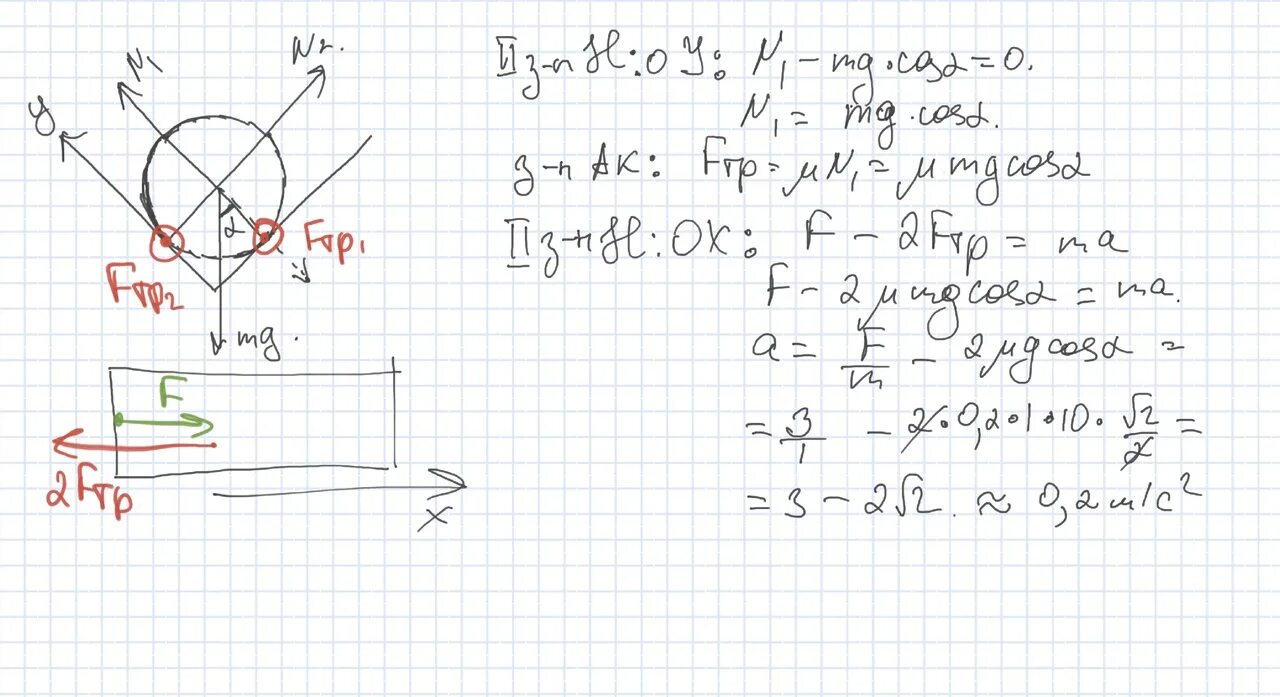 N₁
N₂.
y
α
Fтр₁
Fтр₂
mg.
F
2Fтр
x
II з-н Н: OY: N₁ - mg·cosα = 0.
N₁ = mg·cosα.
з-н АК: Fтр = μN₁ = μmgcosα
II з-н Н: OX: F - 2Fтр = ma
F - 2μmgcosα = ma.
a = F/m - 2μgcosα =
= 3/1 - 2·0,2·1·10·√2/2 =
= 3 - 2√2. ≈ 0,2 м/с²